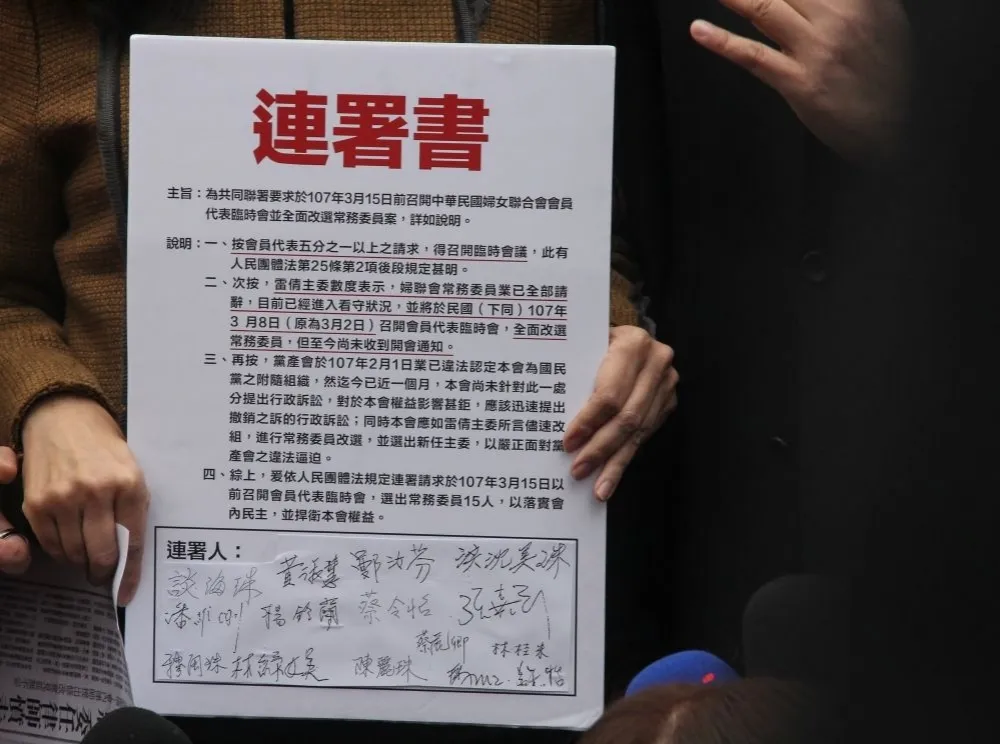 連署書
主旨：為共同聯署要求於107年3月15日前召開中華民國婦女聯合會會員
代表臨時會並全面改選常務委員案，詳如說明。
說明：一、按會員代表五分之一以上之請求，得召開臨時會議，此有
人民團體法第25條第2項後段規定甚明。
二、次按，雷倩主委數度表示，婦聯會常務委員業已全部請
辭，目前已經進入看守狀況，並將於民國（下同）107年
3 月8日（原為3月2日）召開會員代表臨時會，全面改選
常務委員，但至今尚未收到開會通知。
三、再按，黨產會於107年2月1日業已違法認定本會為國民
黨之附隨組織，然迄今已近一個月，本會尚未針對此一處
分提出行政訴訟，對於本會權益影響甚鉅，應該迅速提出
撤銷之訴的行政訴訟；同時本會應如雷倩主委所言儘速改
組，進行常務委員改選，並選出新任主委，以嚴正面對黨
產會之違法逼迫。
四、綜上，爰依人民團體法規定連署請求於107年3月15日以
前召開會員代表臨時會，選出常務委員15人，以落實會
內民主，並捍衛本會權益。
連署人：
談海珠 鄭汝芬 洪沈美珠
潘維剛 楊鈴蘭 蔡令怡
林桂朱
陳麗珠